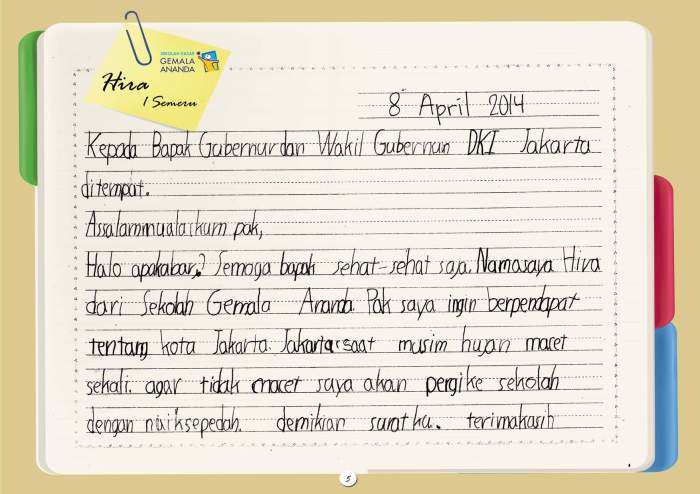 SEKOLAH DASAR
GEMALA
ANANDA
Hira
1 Semeru
8 April 2014
Kepada Bapak Gubernur dan Wakil Gubernun DKI Jakarta
ditempat.
Assalammualaikum pak,
Halo apakabar? Semoga bapak sehat-sehat saja. Namasaya Hira
dari Sekolah Gemala Ananda. Pak saya ingin berpendapat
tentang kota Jakarta. Jakarta saat musim hujan macet
sekali. agar tidak macet saya akan pergike sekolah
dengan naiksepedah. demikian suratku. terimakasih
5